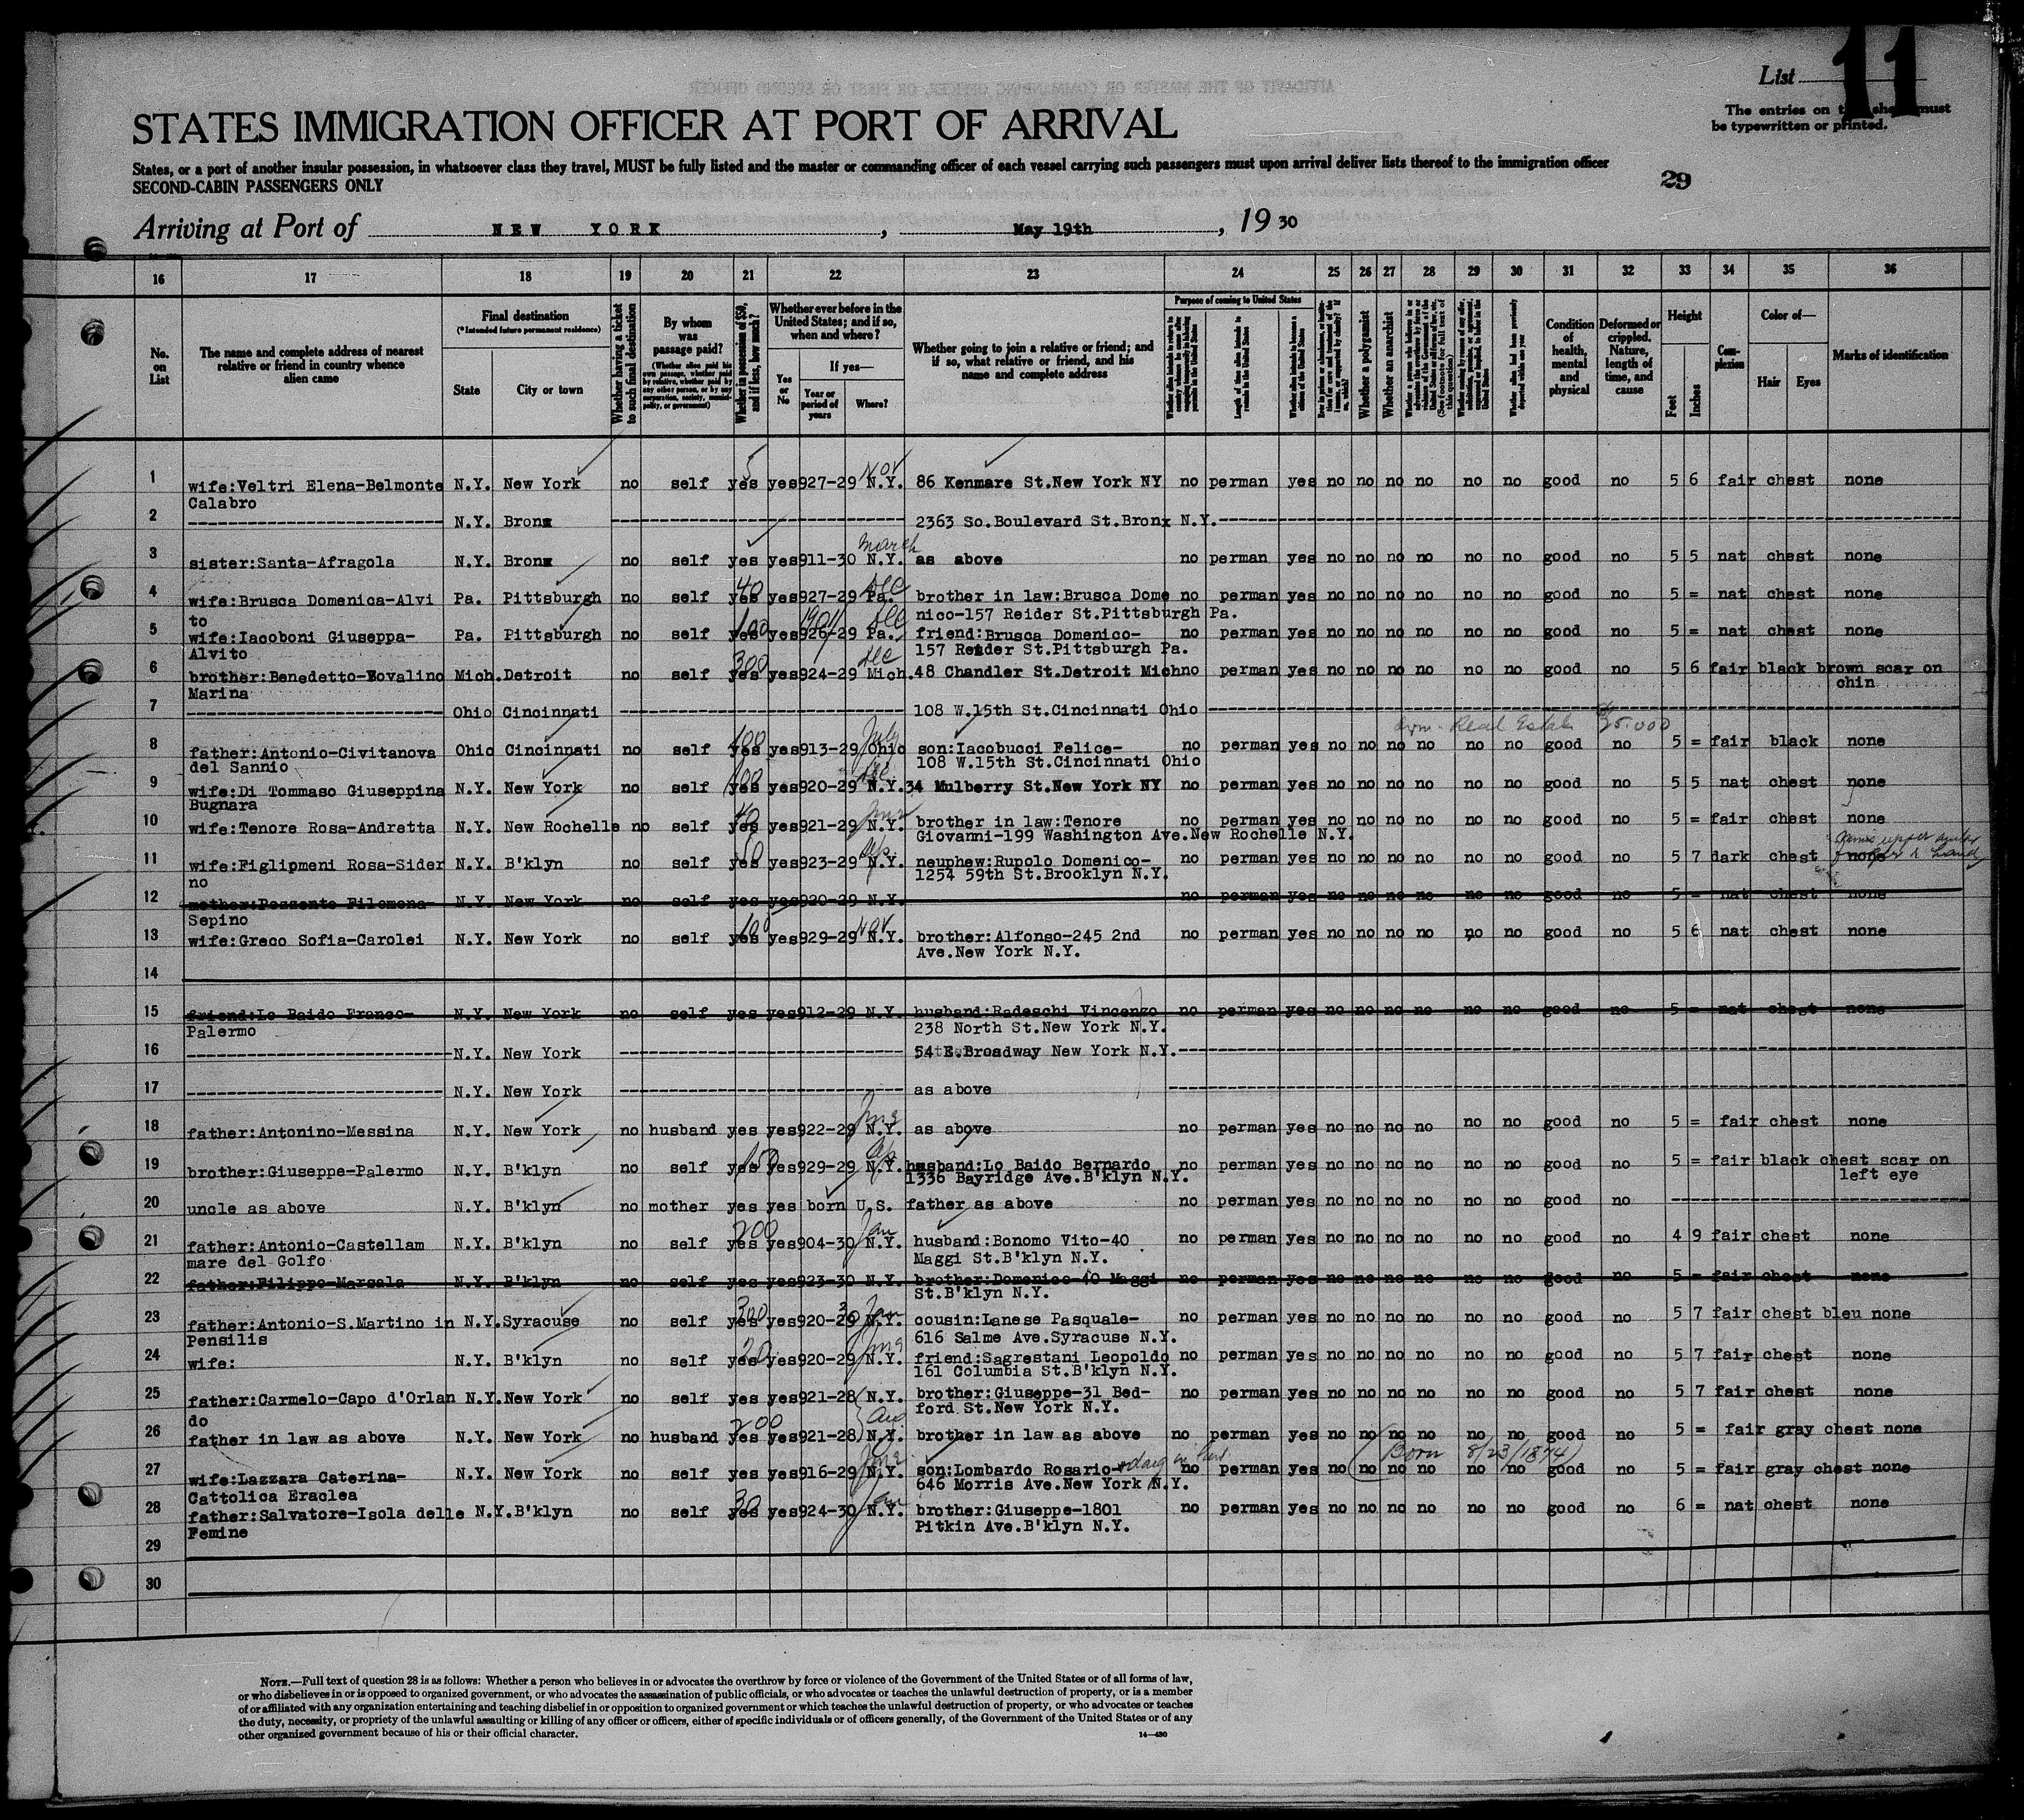 List 11
The entries on must
be typewritten or printed.
STATES IMMIGRATION OFFICER AT PORT OF ARRIVAL
States, or a port of another insular possession, in whatsoever class they travel, MUST be fully listed and the master or commanding officer of each vessel carrying such passengers must upon arrival deliver lists thereof to the immigration officer
SECOND-CABIN PASSENGERS ONLY
29
Arriving at Port of NEW YORK, May 19th, 19 30
16 17 18 19 20 21 22 23 24 25 26 27 28 29 30 31 32 33 34 35 36
No. on List
The name and complete address of nearest relative or friend in country whence alien came
Final destination
(*Intended future permanent residence)
State
City or town
Whether having a ticket to such final destination
By whom was passage paid?
(Whether alien paid his own passage, whether paid by relative, whether paid by any other person, or by any corporation, society, municipality, or government)
Whether in possession of $50, and if less, how much?
Whether ever before in the United States; and if so, when and where?
Yes or No
If yes—
Year or period of years
Where?
Whether going to join a relative or friend; and if so, what relative or friend, and his name and complete address
Purpose of coming to United States
Whether a polygamist
Whether an anarchist
Condition of health, mental and physical
Deformed or crippled. Nature, length of time, and cause
Height
Feet
Inches
Complexion
Color of—
Hair
Eyes
Marks of identification
1 wife:Veltri Elena-Belmonte N.Y. New York no self yes 5 yes 927-29 Nov N.Y. 86 Kenmare St.New York NY no perman yes no no no no no no good no 5 6 fair chest none
Calabro
2 N.Y. Bronx 2363 So.Boulevard St.Bronx N.Y.
3 sister:Santa-Afragola N.Y. Bronx no self yes yes 911-30 March N.Y. as above no perman yes no no no no no no good no 5 5 nat chest none
4 wife:Brusca Domenica-Alvi Pa. Pittsburgh no self yes 40 yes 927-29 Dec Pa. brother in law:Brusca Dome no perman yes no no no no no no good no 5 = nat chest none
to nico-157 Reider St.Pittsburgh Pa.
5 wife:Iacoboni Giuseppa- Pa. Pittsburgh no self yes 100 yes 926-29 Dec Pa. friend:Brusca Domenico- no perman yes no no no no no no good no 5 = nat chest none
Alvito 157 Reider St.Pittsburgh Pa.
6 brother:Benedetto-Bovalino Mich. Detroit no self yes 300 yes 924-29 Dec Mich. 48 Chandler St.Detroit Mich no perman yes no no no no no no good no 5 6 fair black brown scar on
Marina chin
7 Ohio Cincinnati 108 W.15th St.Cincinnati Ohio
Real Estate
8 father:Antonio-Civitanova Ohio Cincinnati no self yes 100 yes 913-29 July Ohio son:Iacobucci Felice- no perman yes no no no no no no good no 5 = fair black none
del Sannio 108 W.15th St.Cincinnati Ohio
9 wife:Di Tommaso Giuseppina N.Y. New York no self yes 100 yes 920-29 Dec N.Y. 34 Mulberry St.New York NY no perman yes no no no no no no good no 5 5 nat chest none
Bugnara
10 wife:Tenore Rosa-Andretta N.Y. New Rochelle no self yes yes 921-29 N.Y. brother in law:Tenore no perman yes no no no no no no good no 5 = fair chest none
Giovanni-199 Washington Ave.New Rochelle N.Y.
11 wife:Figlipmeni Rosa-Sider N.Y. B'klyn no self yes yes 923-29 N.Y. neuphew:Rupolo Domenico- no perman yes no no no no no no good no 5 7 dark chest none
no 1254 59th St.Brooklyn N.Y.
12 mother:Pozzente Filomena- N.Y. New York no self yes yes 920-29 N.Y. no perman yes no no no no no no good no 5 = nat chest none
Sepino
13 wife:Greco Sofia-Carolei N.Y. New York no self yes 100 yes 929-29 Nov N.Y. brother:Alfonso-245 2nd no perman yes no no no no no no good no 5 6 nat chest none
Ave.New York N.Y.
14
15 friend:Lo Baido Franco- N.Y. New York no self yes yes 912-29 N.Y. husband:Radeschi Vincenzo no perman yes no no no no no no good no 5 = nat chest none
Palermo 238 North St.New York N.Y.
16 N.Y. New York 54 E.Broadway New York N.Y.
17 N.Y. New York as above
18 father:Antonino-Messina N.Y. New York no husband yes yes 922-29 N.Y. as above no perman yes no no no no no no good no 5 = fair chest none
19 brother:Giuseppe-Palermo N.Y. B'klyn no self yes yes 929-29 N.Y. husband:Lo Baido Bernardo no perman yes no no no no no no good no 5 = fair black chest scar on
1336 Bayridge Ave.B'klyn N.Y. left eye
20 uncle as above N.Y. B'klyn no mother yes yes born U.S. father as above no perman yes no no no no no no good no
21 father:Antonio-Castellam N.Y. B'klyn no self yes 200 yes 904-30 Jan N.Y. husband:Bonomo Vito-40 no perman yes no no no no no no good no 4 9 fair chest none
mare del Golfo Maggi St.B'klyn N.Y.
22 father:Filippo-Marsala N.Y. B'klyn no self yes yes 923-30 N.Y. brother:Domenico-40 Maggi no perman yes no no no no no no good no 5 = fair chest none
St.B'klyn N.Y.
23 father:Antonio-S.Martino in N.Y. Syracuse no self yes 300 yes 920-29 Jan N.Y. cousin:Lanese Pasquale- no perman yes no no no no no no good no 5 7 fair chest bleu none
Pensilis 616 Salme Ave.Syracuse N.Y.
24 wife: N.Y. B'klyn no self yes 20 yes 920-29 N.Y. friend:Sagrestani Leopoldo no perman yes no no no no no no good no 5 7 fair chest none
161 Columbia St.B'klyn N.Y.
25 father:Carmelo-Capo d'Orlan N.Y. New York no self yes yes 921-28 N.Y. brother:Giuseppe-31 Bed- no perman yes no no no no no no good no 5 7 fair chest none
do ford St.New York N.Y.
26 father in law as above N.Y. New York no husband yes 200 yes 921-28 N.Y. brother in law as above no perman yes no no no no no no good no 5 = fair gray chest none
Born 8/23/1874
27 wife:Lazzara Caterina- N.Y. New York no self yes yes 916-29 N.Y. son:Lombardo Rosario- no perman yes no no no no no no good no 5 = fair gray chest none
Cattolica Eraclea 646 Morris Ave.New York N.Y.
28 father:Salvatore-Isola delle N.Y. B'klyn no self yes 30 yes 924-30 Jan N.Y. brother:Giuseppe-1801 no perman yes no no no no no no good no 6 = nat chest none
Femine Pitkin Ave.B'klyn N.Y.
29
30
NOTE.—Full text of question 28 is as follows: Whether a person who believes in or advocates the overthrow by force or violence of the Government of the United States or of all forms of law,
or who disbelieves in or is opposed to organized government, or who advocates the assassination of public officials, or who advocates or teaches the unlawful destruction of property, or is a member
of or affiliated with any organization entertaining and teaching disbelief in or opposition to organized government or which teaches the unlawful destruction of property, or who advocates or teaches
the duty, necessity, or propriety of the unlawful assaulting or killing of any officer or officers, either of specific individuals or of officers generally, of the Government of the United States or of any
other organized government because of his or their official character.
14—430